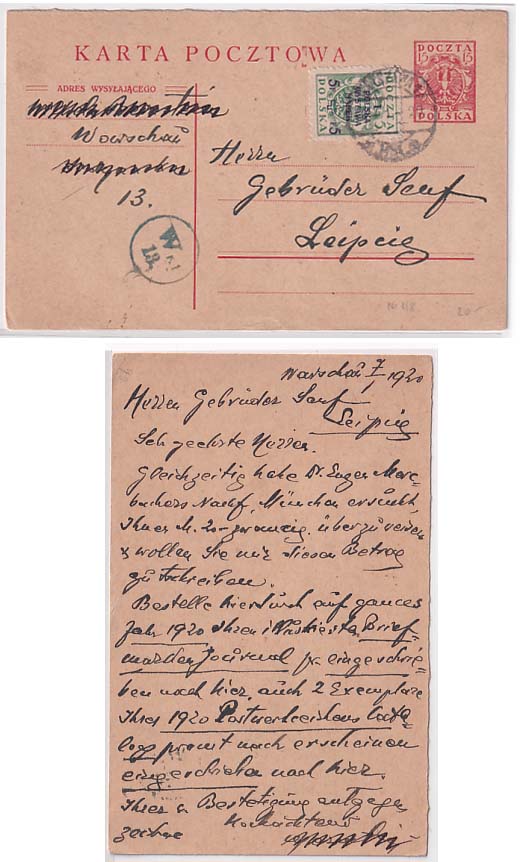 KARTA POCZTOWA
POCZTA
15 15
POLSKA
ADRES WYSYŁAJĄCEGO
POCZTA
POLSKA
5 5
Warschau
13.
Herrn
Gebrüder Senf
Leipzig
W
13.
Warschau 7/1 1920
Herren Gebrüder Senf
Leipzig
Sehr geehrte Herren.
Gleichzeitig habe Dr. Eugen Merz-
bachers Nachf, München ersucht,
Ihnen M. 20-zwanzig überzuweisen
& wollen Sie mir diesen Betrag
gutschreiben.
Bestelle hierdurch auf ganzes
Jahr 1920 Ihren Illustrierten Brief-
marken Journal pr. eingeschrie-
ben nach hier, auch 2 Exemplare
Ihres 1920 Postwertzeichens Cata-
logs promt nach erscheinen
eingeschrieben nach hier.
Ihrer Bestetigung entgegen
Hochachtend